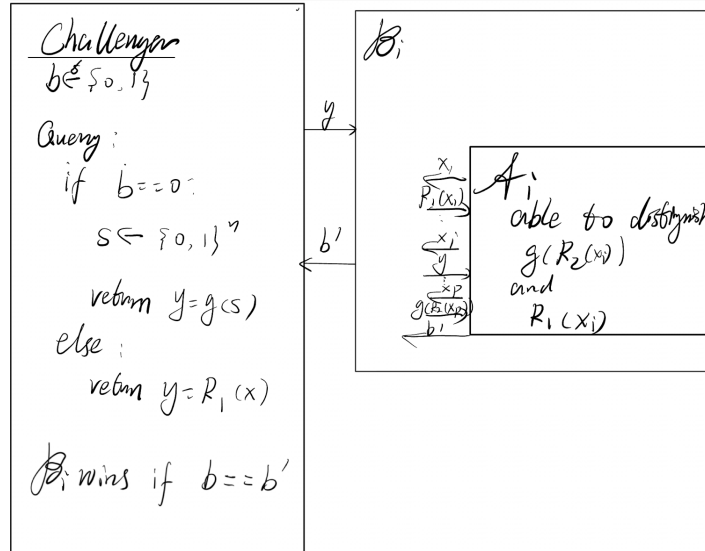 Challenger
b ←$ {0,1}
Query:
if b==0:
s ← {0,1}^n
return y=g(s)
else:
return y=R₁(x)
B_i wins if b==b'
y
b'
B_i
x₁
R₁(x₁)
⋮
x_i
y
⋮
x_p
g(R₂(x_p))
b'
A_i
able to distinguish
g(R₂(x_i))
and
R₁(x_i)